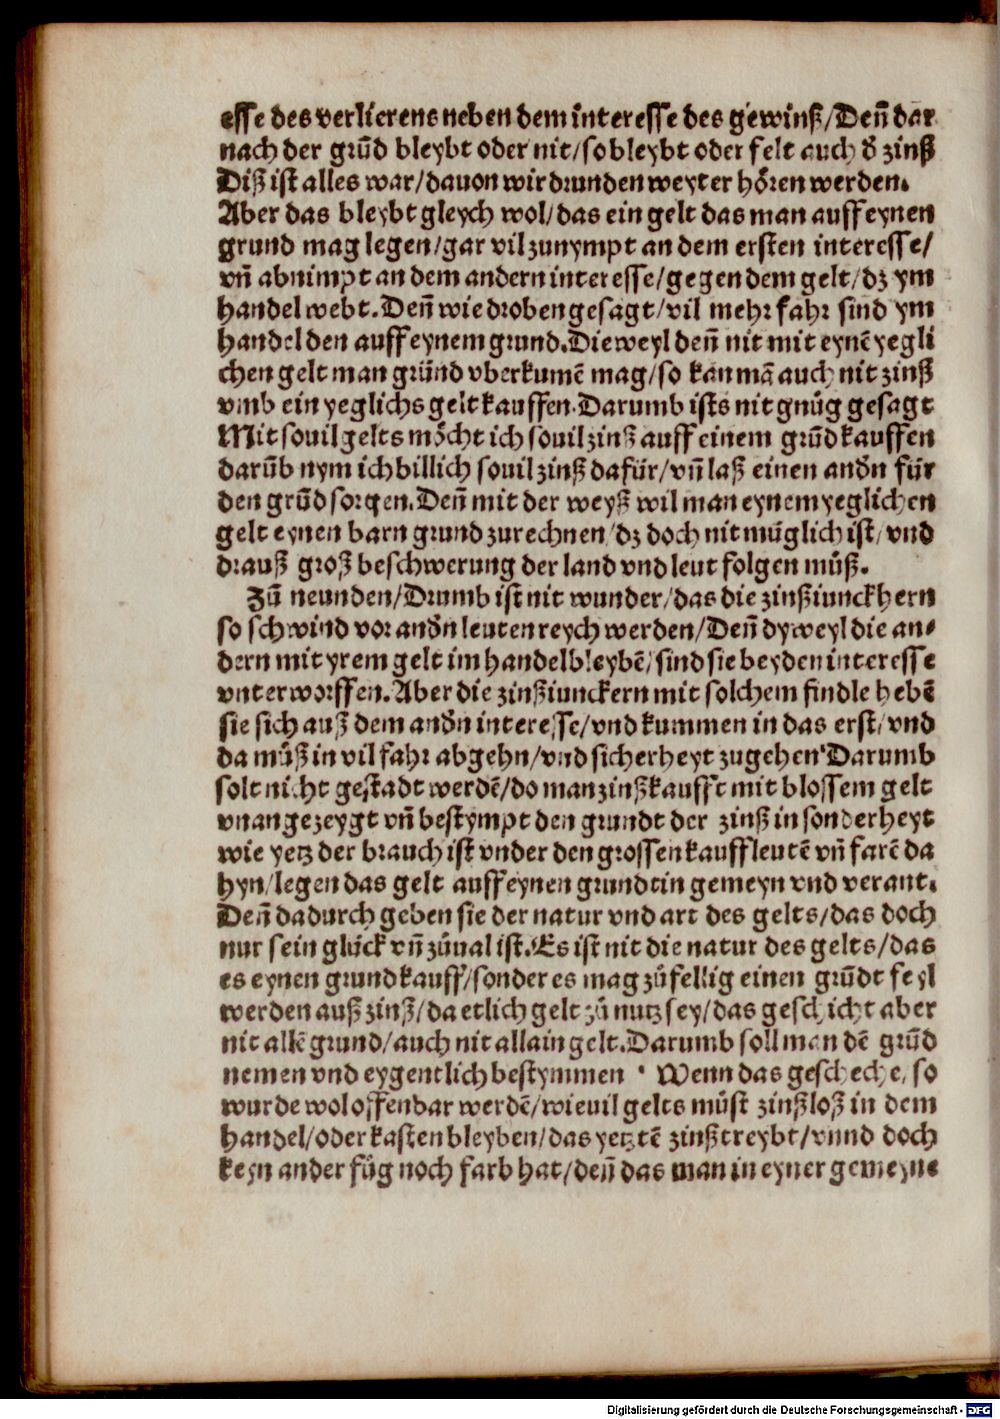 esse des verlierens neben dem interesse des gewinß/Deñ dar
nach der grũd bleybt oder nit/so bleybt oder felt auch ð zinß
Diß ist alles war/dauon wir drunden weyter hören werden.
Aber das bleybt gleych wol/das ein gelt das man auff eynen
grund mag legen/gar vil zunympt an dem ersten interesse/
vñ abnimpt an dem andern interesse/gegen dem gelt/dz ym
handel webt. Deñ wie droben gesagt/vil mehr fahr sind ym
handel den auff eynem grund. Die weyl deñ nit mit eynẽ yegli
chen gelt man gründ vberkumẽ mag/so kan mã auch nit zinß
vmb ein yeglichs gelt kauffen. Darumb ists nit gnůg gesagt
Mit souil gelts möcht ich souil zinß auff einem grũd kauffen
darũb nym ich billich souil zinß dafür/vñ laß einen anðn für
den grũd sorgen. Deñ mit der weyß wil man eynem yeglichen
gelt eynen barn grund zurechnen/dz doch nit müglich ist/vnd
drauß groß beschwerung der land vnd leut folgen můß.
Zů neunden/Drumb ist nit wunder/das die zinßiunckhern
so schwind vor anðn leuten reych werden/Deñ dyweyl die an⸗
dern mit yrem gelt im handel bleybẽ/sind sie beyden interesse
vnterworffen. Aber die zinßiunckern mit solchem findle hebẽ
sie sich auß dem anðn interesse/vnd kummen in das erst/vnd
da můß in vil fahr abgehn/vnd sicherheyt zugehen Darumb
solt nicht gestadt werdẽ/do man zinß kaufft mit blossem gelt
vnangezeygt vñ bestympt den grundt der zinß in sonderheyt
wie yetz der brauch ist vnder den grossen kauffleutẽ vñ farẽ da
hyn/legen das gelt auff eynen grundt in gemeyn vnd verant.
Deñ dadurch geben sie der natur vnd art des gelts/das doch
nur sein glück vñ zůual ist. Es ist nit die natur des gelts/das
es eynen grund kauff/sonder es mag zůfellig einen grũdt feyl
werden auß zinß/da etlich gelt zů nutz sey/das geschicht aber
nit allẽ grund/auch nit allain gelt. Darumb soll man dẽ grũd
nemen vnd eygentlich bestymmen · Wenn das gescheche/so
wurde wol offenbar werdẽ/wieuil gelts můst zinßloß in dem
handel/oder kasten bleyben/das yetztẽ zinß treybt/vnnd doch
keyn ander fůg noch farb hat/deñ das man in eyner gemeyne
Digitalisierung gefördert durch die Deutsche Forschungsgemeinschaft - DFG